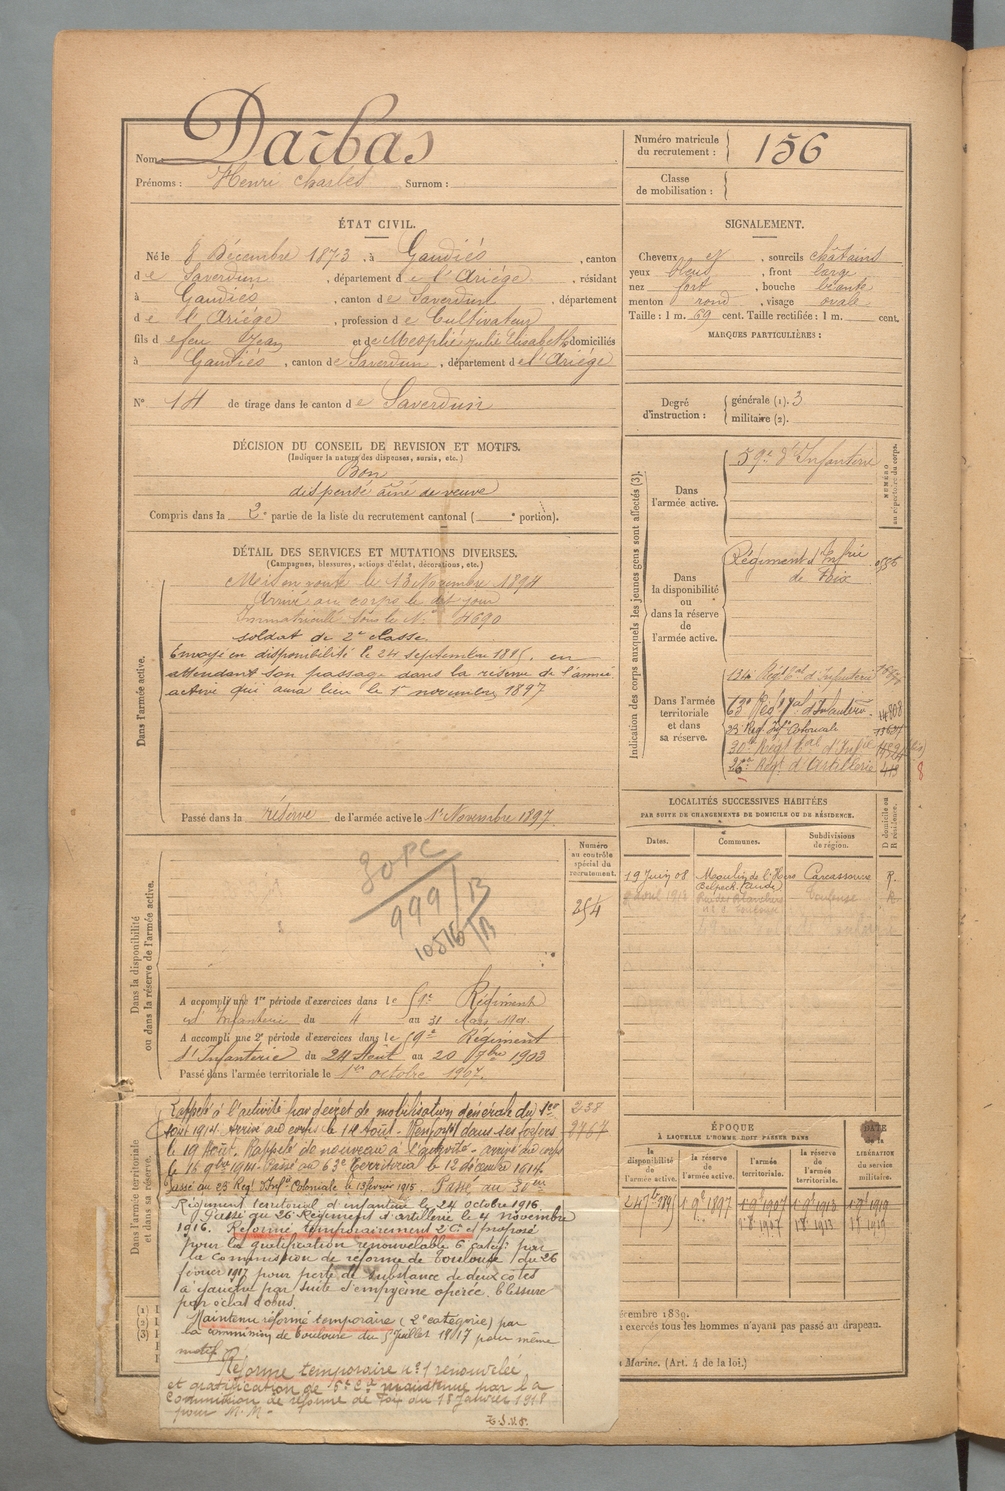 Nom : Darbas
Prénoms : Henri Charles Surnom :
Numéro matricule du recrutement : 156
Classe de mobilisation :
ÉTAT CIVIL.
Né le 8 Décembre 1873, à Gaudiés, canton
de Saverdun, département de l'Ariège, résidant
à Gaudiés, canton de Saverdun, département
de l'Ariège, profession de Cultivateur
fils de feu Jean et de Mesplié Julie Elisabeth domiciliés
à Gaudiés, canton de Saverdun, département de l'Ariège
N° 14 de tirage dans le canton de Saverdun
SIGNALEMENT.
Cheveux et, sourcils châtains
yeux bleus, front large
nez fort, bouche béante
menton rond, visage ovale
Taille : 1 m. 69 cent. Taille rectifiée : 1 m. cent.
MARQUES PARTICULIÈRES :
Degré d'instruction : générale (1). 3
militaire (2).
DÉCISION DU CONSEIL DE REVISION ET MOTIFS.
(Indiquer la nature des dispenses, sursis, etc.)
Bon
dispensé aîné de veuve
Compris dans la 2e partie de la liste du recrutement cantonal ( e portion).
DÉTAIL DES SERVICES ET MUTATIONS DIVERSES.
(Campagnes, blessures, actions d'éclat, décorations, etc.)
Dans l'armée active.
Mis en route le 13 Novembre 1894
Arrivé au corps le dit jour
Immatriculé sous le N° 4690
soldat de 2e classe.
Envoyé en disponibilité le 24 septembre 1895, en
attendant son passage dans la réserve de l'armée
active qui aura lieu le 1er novembre 1897
Passé dans la réserve de l'armée active le 1er Novembre 1897.
Indication des corps auxquels les jeunes gens sont affectés (3).
NUMÉRO au répertoire du corps.
Dans l'armée active.
59e d'Infanterie
Dans la disponibilité ou dans la réserve de l'armée active.
Régiment d'Infrie
de Foix
Dans l'armée territoriale et dans sa réserve.
134e Régt Tal d'Infanterie
63e Régt Tal d'Infanterie
23e Régt Infie Coloniale
30e Régt Tal d'Infie
26e Régt d'Artillerie
8
LOCALITÉS SUCCESSIVES HABITÉES
PAR SUITE DE CHANGEMENTS DE DOMICILE OU DE RÉSIDENCE.
Dates. Communes. Subdivisions de région. D domicile ou R résidence.
19 Juin 08 Moulin de l'Hers Carcassonne R.
Belpech (Aude)
Toulouse
Dans la disponibilité ou dans la réserve de l'armée active.
Numéro au contrôle spécial du recrutement.
254
30 PC
999/B
10516/B
A accompli une 1re période d'exercices dans le 59e Régiment
d'Infanterie du 4 au 31 Mars
A accompli une 2e période d'exercices dans le 59e Régiment
d'Infanterie du 24 Août au 20 7bre 1903
Passé dans l'armée territoriale le 1er octobre 1907.
Dans l'armée territoriale et dans sa réserve.
238
Rappelé à l'activité par décret de mobilisation générale du 1er
août 1914. Arrivé au corps le 14 Août. Renvoyé dans ses foyers
le 19 Août. Rappelé de nouveau à l'activité. arrivé au corps
le 16 9bre 1914. Passé au 63e Territorial le 12 décembre 1914
Passé au 23 Régt d'Infie Coloniale le 13 février 1915. Passé au 30eme
Régiment territorial d'infanterie le 24 octobre 1916.
Passé au 26 Régiment d'artillerie le 4 novembre
1916. Réformé temporairement 2 Cie et proposé
pour la gratification renouvelable 6 catégie par
la commission de réforme de Toulouse du 26
février 1917 pour perte de substance de deux côtes
à gauche par suite d'empyème opérée. blessure
par éclat d'obus.
Maintenu réformé temporaire (2e catégorie) par
la commission de Toulouse du 5 juillet 1917 pour même
motif.
Réforme temporaire n° 1 renouvelée
et gratification de 5e Cie maintenue par la
Commission de réforme de Foix du 18 Janvier 1918
pour M. M.
ÉPOQUE
À LAQUELLE L'HOMME DOIT PASSER DANS
la disponibilité de l'armée active. la réserve de l'armée active. l'armée territoriale. la réserve de l'armée territoriale. DATE de la LIBÉRATION du service militaire.
1er 9bre 1897
écembre 1889.
exercés tous les hommes n'ayant pas passé au drapeau.
Marine. (Art. 4 de la loi.)